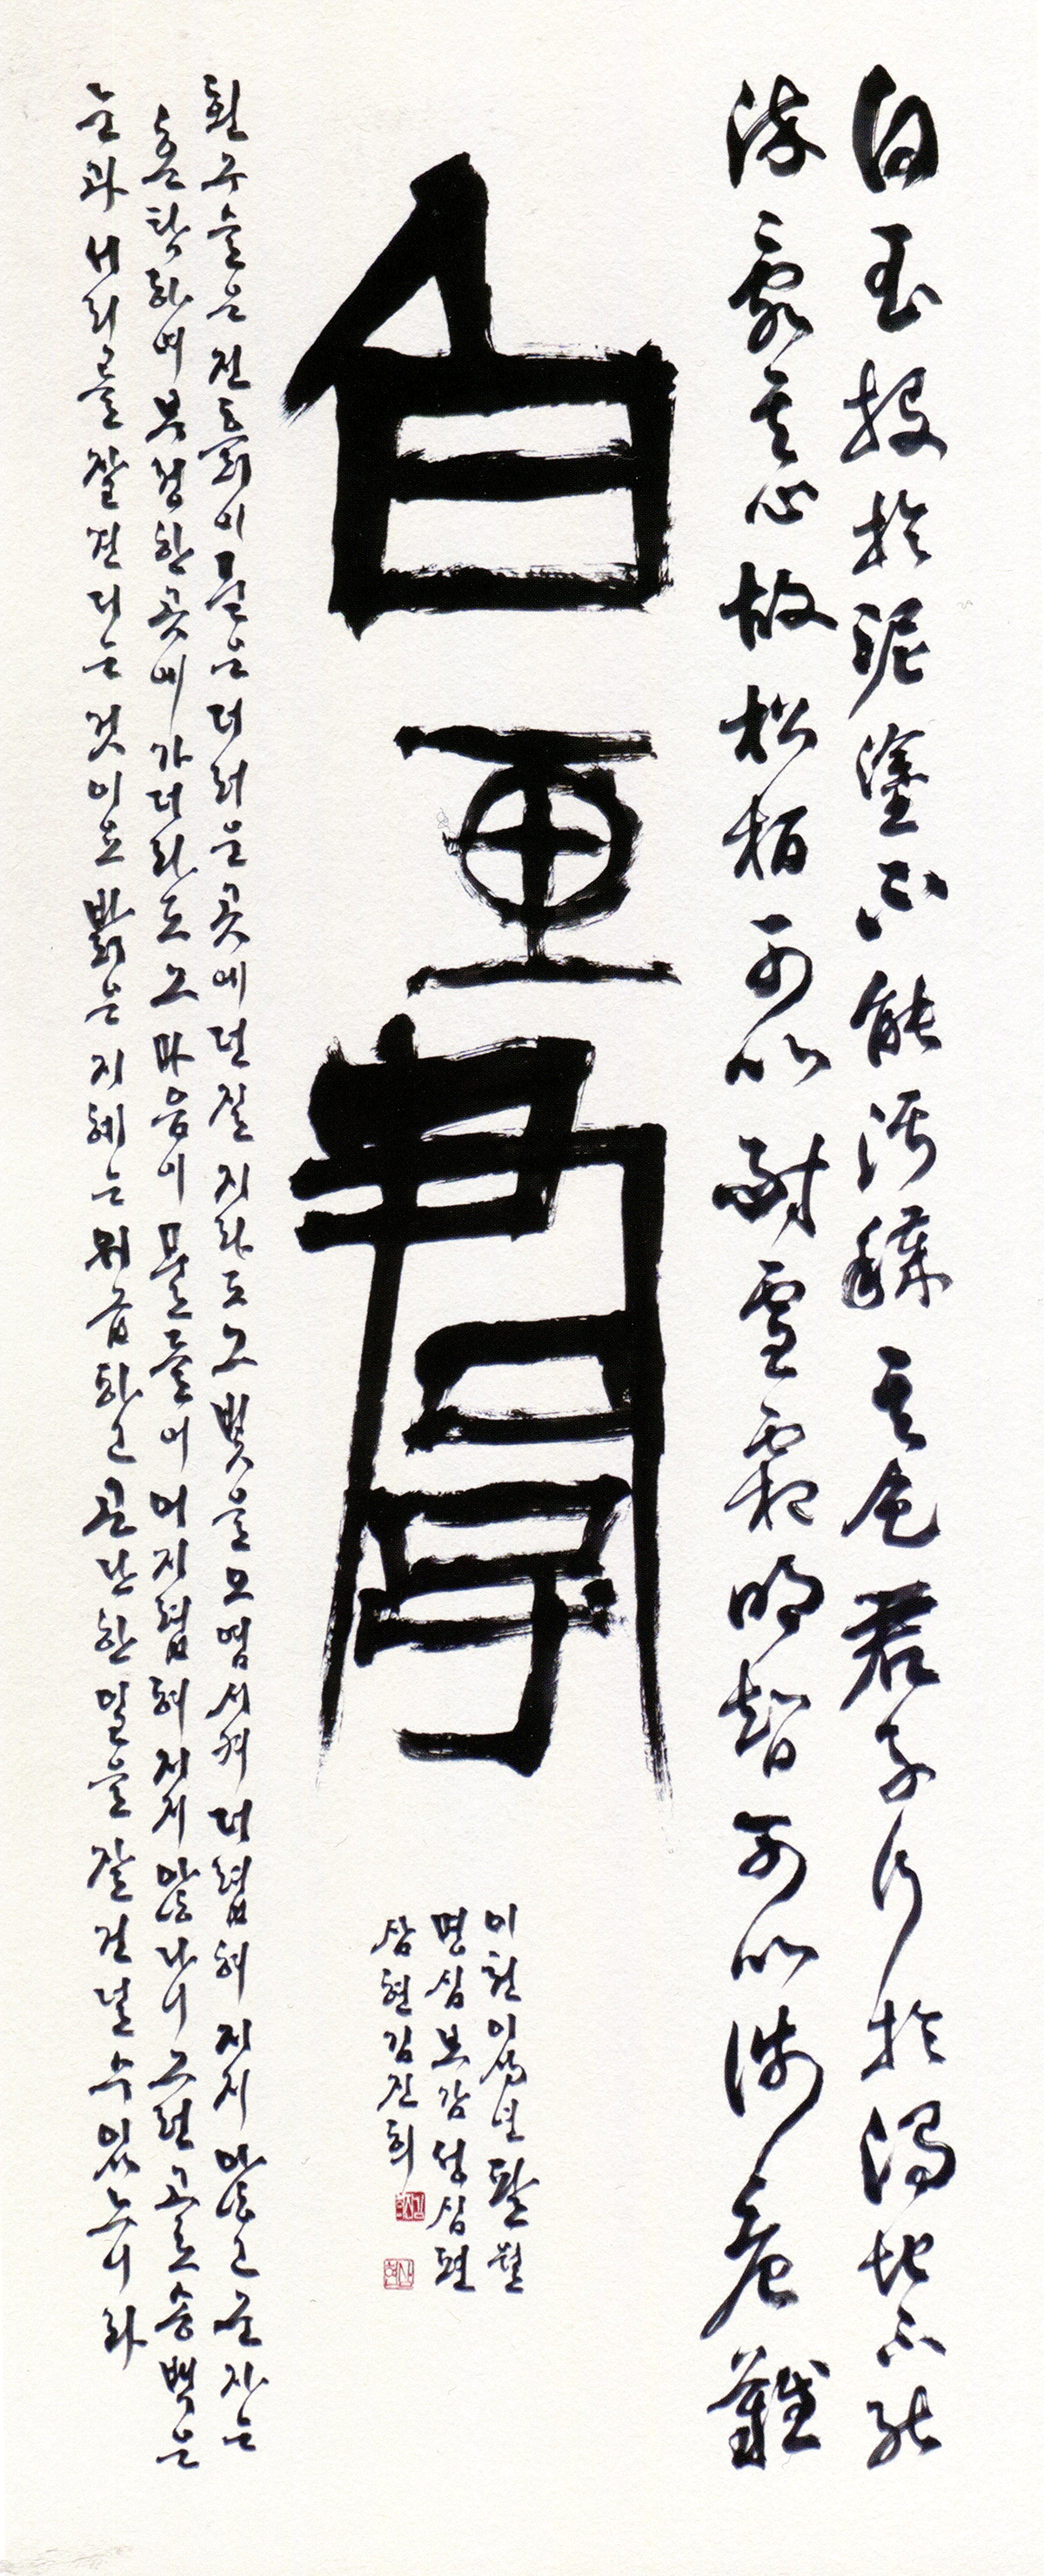 白玉投於泥塗不能汚穢其色君子行於濁地不能
染亂其心故松栢可以耐雪霜明智可以涉危難
白
이천이십년팔월
명심보감성심편
삼현김진희
흰구슬은진흙이묻은더러운곳에던질지라도그빛을모염시켜더렵혀지지않고군자는
혼탁하며부정한곳에가더라도그마음이물들어어지렵혀지지않나니그런고로송백은
눈과서리를잘견디는것이요밝은지혜는위급하고곤난한일을잘건널수있느니라